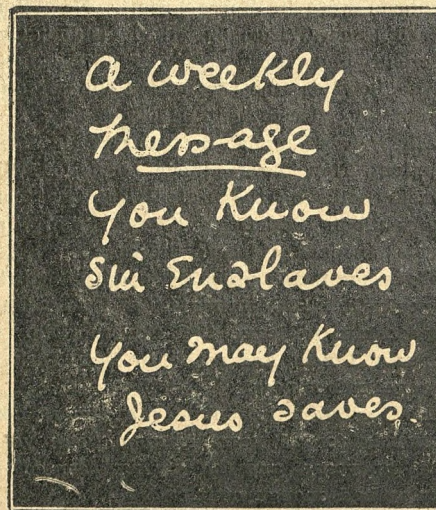 A weekly
Message
You Know
Sin Enslaves
You May Know
Jesus saves.